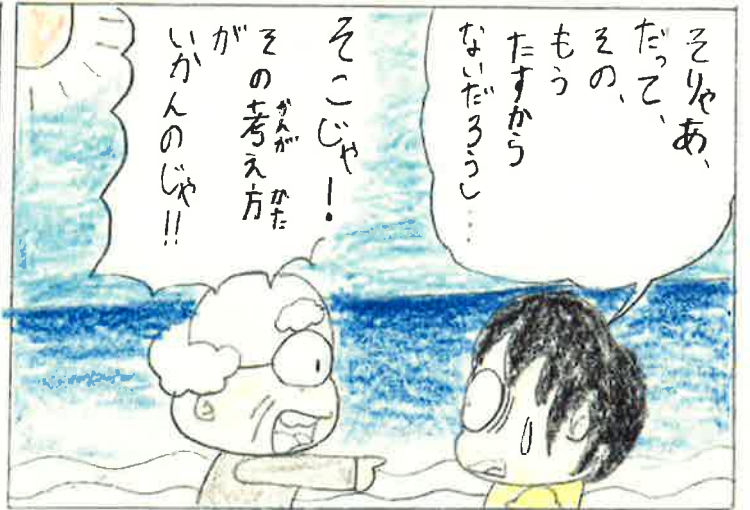 そりゃあ、
だって、
その、
もう
たすから
ないだろうし…
そこじゃ!
その考え方
かんが かた
が
いかんのじゃ!!